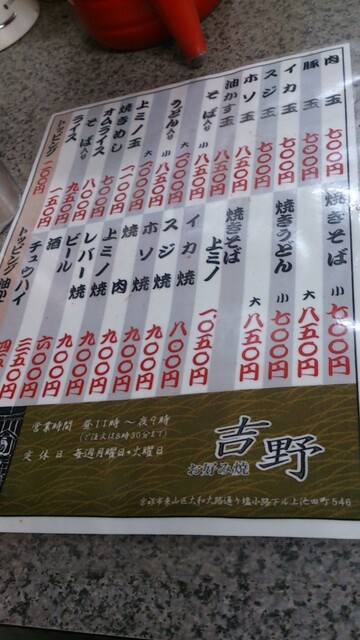 肉玉 七〇〇円
豚玉 七〇〇円
イカ玉 七〇〇円
スジ玉 七〇〇円
ホソ玉
油かす玉 八五〇円
そば入り 小 八五〇円
大
うどん入り 小
大
上ミノ玉
焼きめし 七〇〇円
オムライス 八〇〇円
そば入り 九五〇円
ライス 一五〇円
トッピング 一〇〇円
焼きそば 小 七〇〇円
大 八五〇円
焼きうどん 小 七〇〇円
大 八五〇円
焼きそば上ミノ 一、〇五〇円
イカ焼 八〇〇円
スジ焼 九〇〇円
ホソ焼 九〇〇円
焼肉 九〇〇円
上ミノ焼 九〇〇円
レバー焼 九〇〇円
ビール 六〇〇円
酒 三五〇円
チュウハイ
トッピング油か
吉野
お好み焼
営業時間 昼11時～夜9時
(ご注文は8時30分まで)
定休日 毎週月曜日・火曜日
京都市東山区大和大路通り塩小路下ル上池田町546